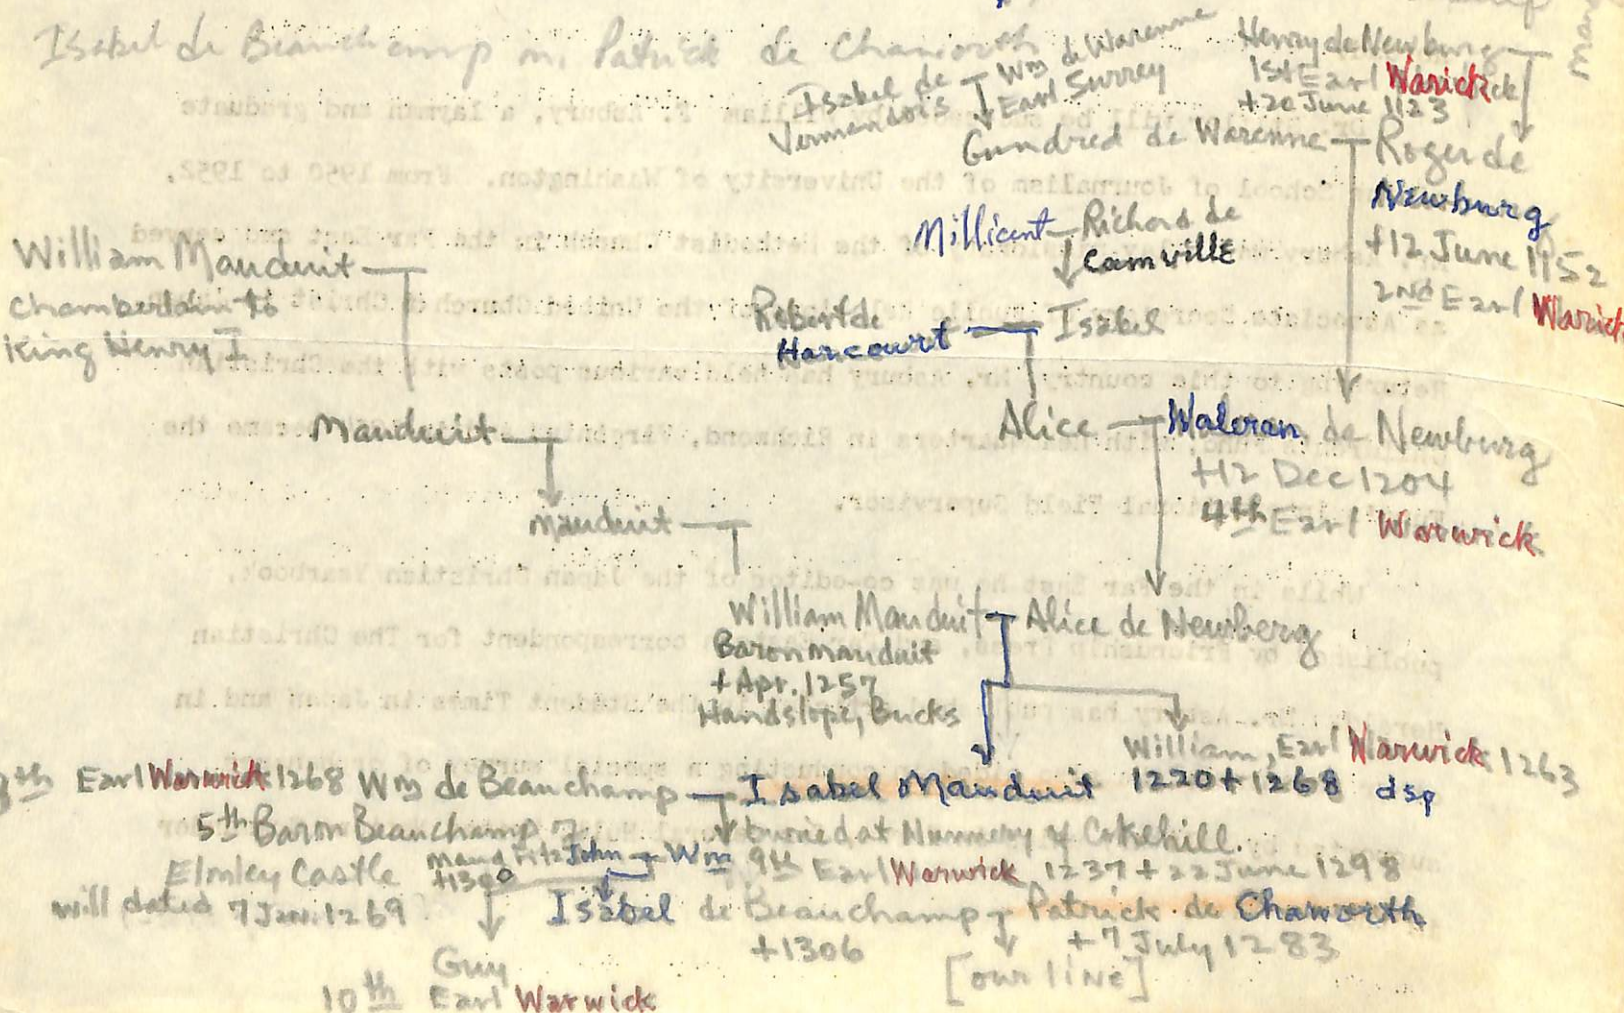 Isabel de Beauchamp m. Patrick de Chaworth
Isabel de
Vermandois
Wm de Warenne
Earl Surrey
Henry de Newburg
1st Earl Warick
+20 June 1123
Gundred de Warenne
Roger de
Newburg
+12 June 1152
2nd Earl Warick
Millicent
Richard de
Camville
William Mauduit
Chamberlain to
King Henry I
Robert de
Harcourt
Isabel
Mauduit
Alice
Waleran de Newburg
+12 Dec 1204
4th Earl Warwick
Mauduit
William Mauduit
Baron Mauduit
+Apr. 1257
Handslope, Bucks
Alice de Newberg
William, Earl Warwick 1263
1220+1268 dsp
8th Earl Warwick 1268 Wm de Beauchamp
Isabel Mauduit
5th Baron Beauchamp
buried at Nunnery of Cokehill.
Elmley Castle
will dated 7 Jan. 1269
Maud FitzJohn
Wm 9th Earl Warwick 1237+22 June 1298
Isabel de Beauchamp
+1306
Patrick de Chaworth
+7 July 1283
[our line]
Guy
10th Earl Warwick